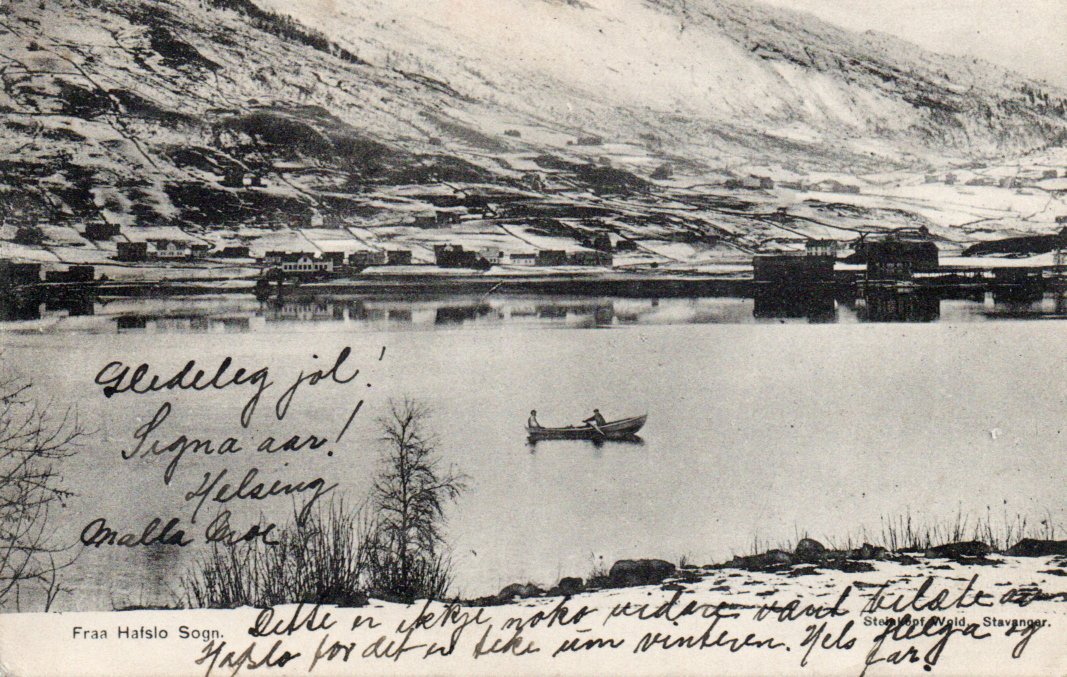 Gledeleg jol!
Signa aar!
Helsing
Malla Moe
Fraa Hafslo Sogn.
Stenh. Wold, Stavanger.
Dette er ikkje noko vidare vænt bilæte av
Hafslo for det er teke um vinteren. Hels Helga og
far.